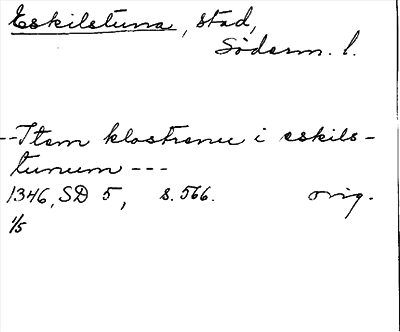 Eskilstuna, stad,
Söderm. l.
--Item klostrenu i eskils-
tunum ---
1346, SD 5, s. 566. orig.
1/5